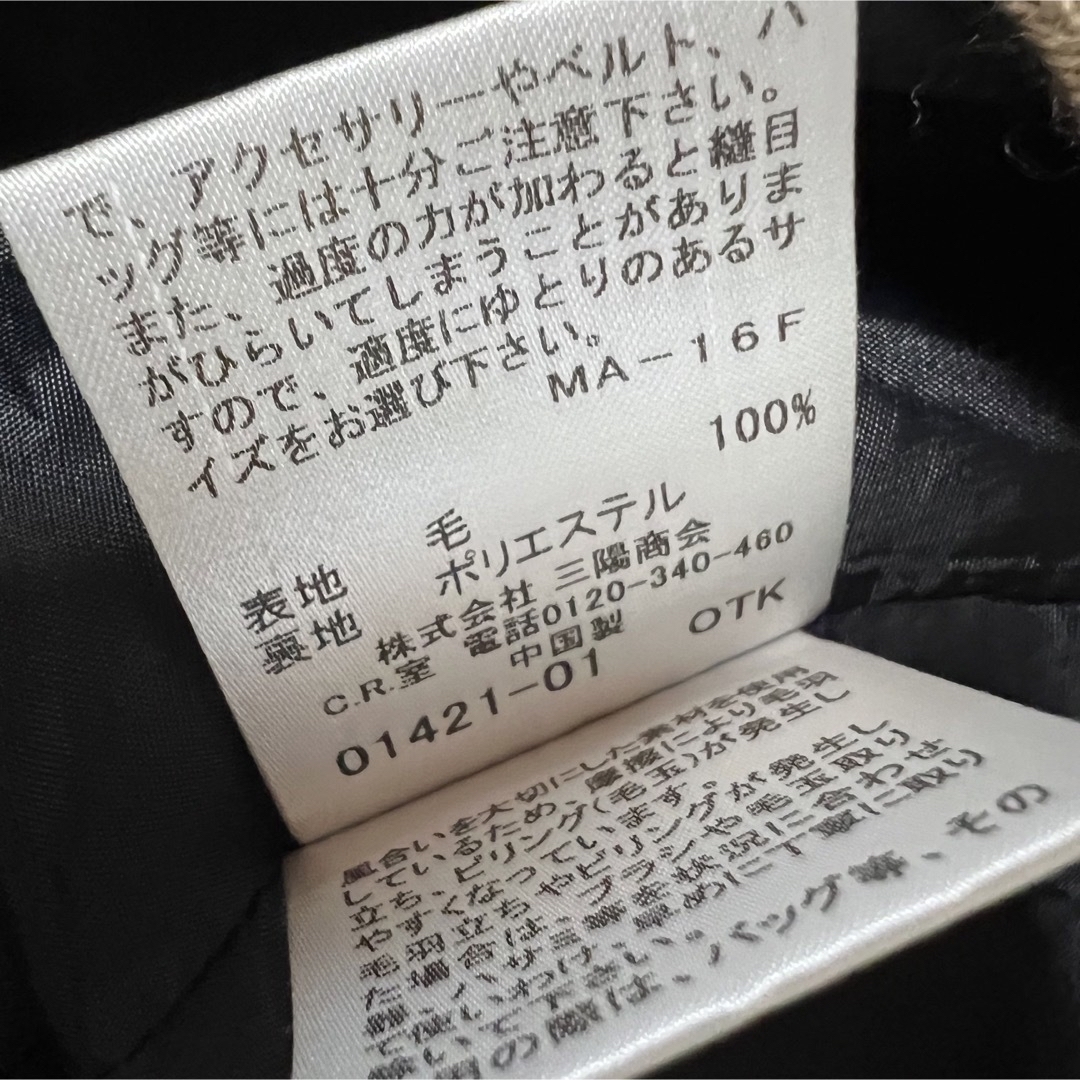 で、アクセサリーやベルト、バ
ッグ等には十分ご注意下さい。
また、過度の力が加わると縫目
がひらいてしまうことがありま
すので、適度にゆとりのあるサ
イズをお選び下さい。
MA-16F
表地 毛 100%
裏地 ポリエステル
株式会社 三陽商会
C.R.室 電話0120-340-460
中国製 OTK
01421-01
風合いを大切にした素材を使用
しているため、摩擦により毛羽
立ち、ピリング(毛玉)が発生し
やすくなっています。
毛羽立ちやピリングが発生し
た場合は、ブラシや毛玉取り
ハサミ等を状況に合わせ
て使いわけ、早めに丁寧に取り
除いて下さい。
の際は、バッグ等、その